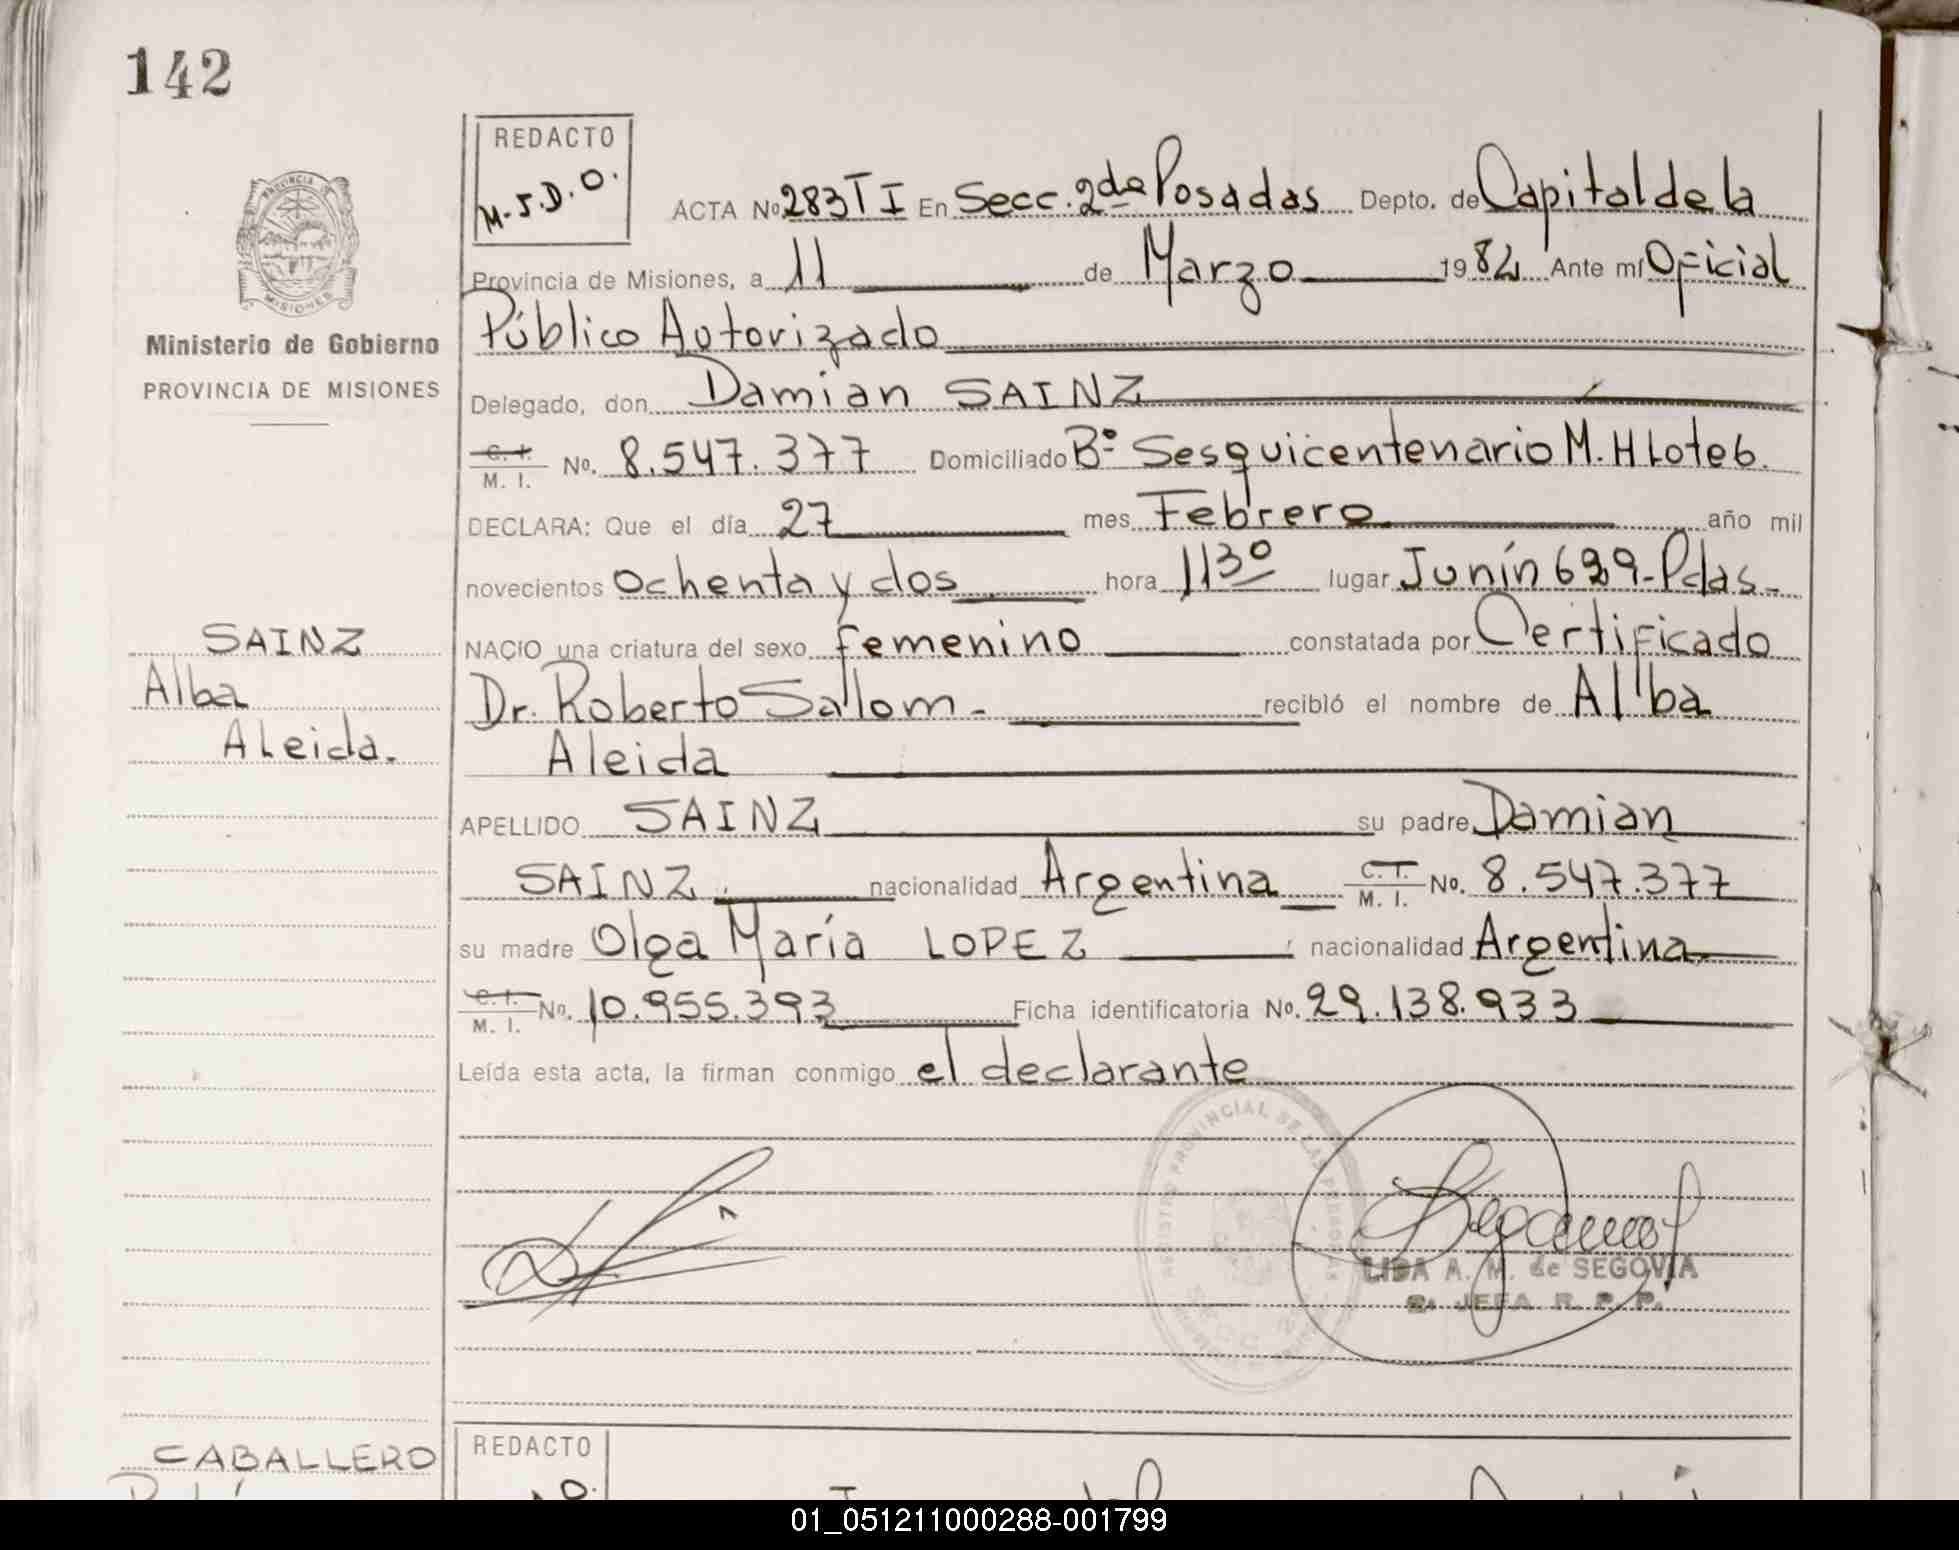 142
REDACTO
M-S.D.O.
ACTA No 283 T I En Secc. 2da Posadas Depto. de Capital de la
Provincia de Misiones, a 11 de Marzo 1982 Ante mí Oficial
Público Autorizado
Delegado, don Damian SAINZ
C. I. M. I. No. 8.547.377 Domiciliado Bº Sesquicentenario M. H Lote 6.
DECLARA: Que el día 27 mes Febrero año mil
novecientos Ochenta y dos hora 11 30 lugar Junín 699-Pdas-
NACIO una criatura del sexo femenino constatada por Certificado
Dr. Roberto Sallom- recibió el nombre de Alba
Aleida
APELLIDO SAINZ su padre Damian
SAINZ nacionalidad Argentina C. I. M. I. No. 8.547.377
su madre Olga María LOPEZ nacionalidad Argentina
C. I. M. I. No. 10.955.393 Ficha identificatoria No. 29.138.933
Leída esta acta, la firman conmigo el declarante
PROVINCIA DE MISIONES
Ministerio de Gobierno
PROVINCIA DE MISIONES
SAINZ
Alba
Aleida.
REGISTRO PROVINCIAL DE LAS PERSONAS
LIDA A. M. de SEGOVIA
JEFA R. P. P.
CABALLERO
REDACTO
01_051211000288-001799